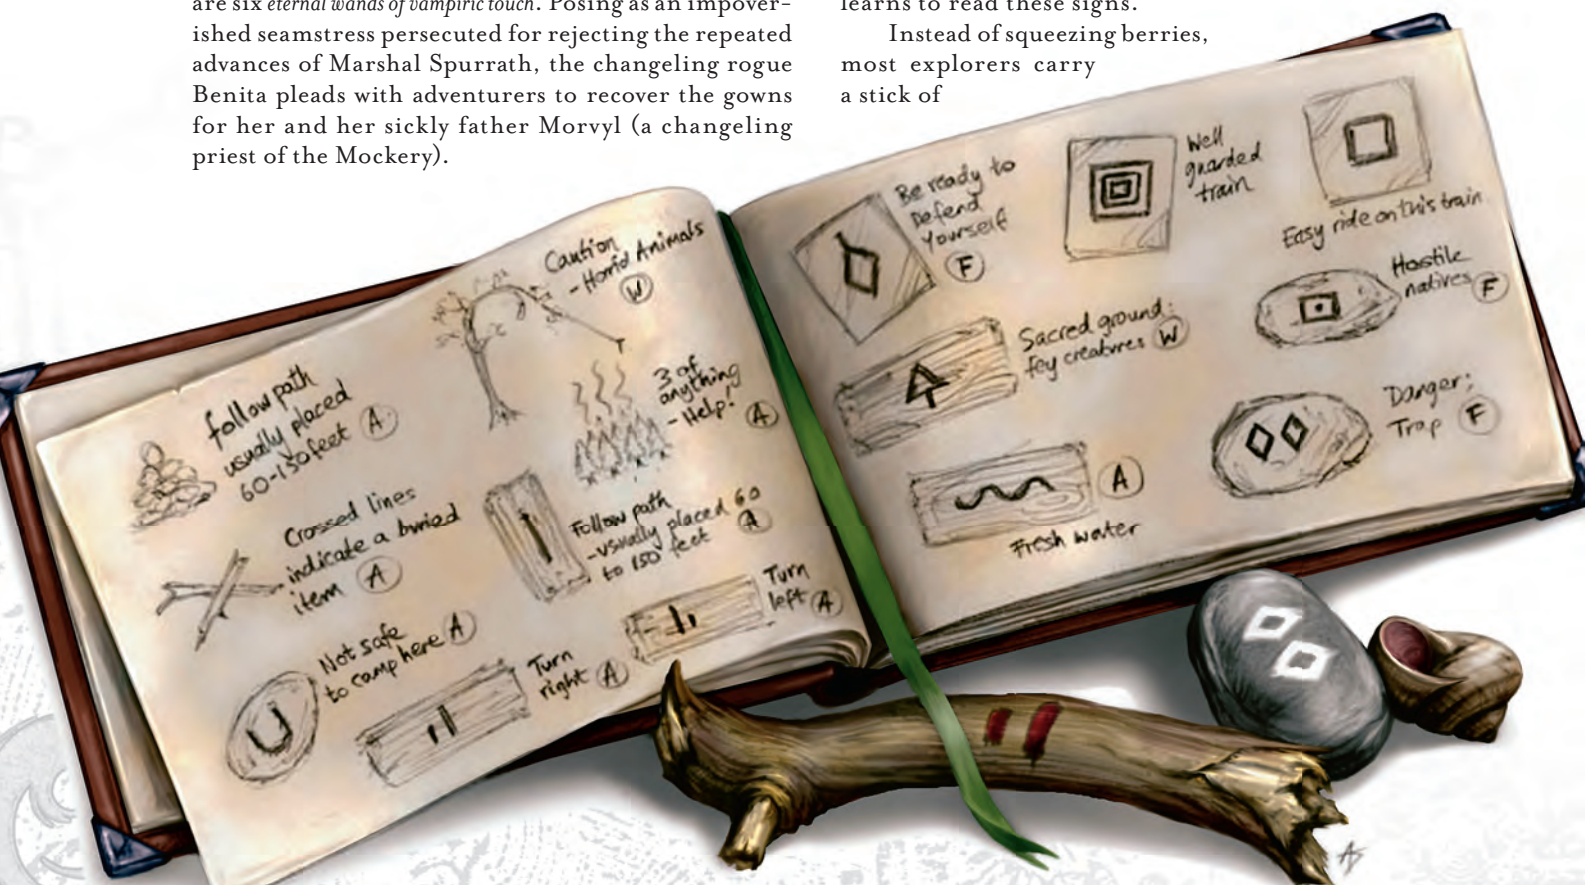 are six eternal wands of vampiric touch. Posing as an impover-
ished seamstress persecuted for rejecting the repeated
advances of Marshal Spurrath, the changeling rogue
Benita pleads with adventurers to recover the gowns
for her and her sickly father Morvyl (a changeling
priest of the Mockery).
learns to read these signs.
Instead of squeezing berries,
most explorers carry
a stick of
Caution
- Horrid Animals
W
follow path
usually placed
60-150 feet A
3 of
anything
- Help! A
Crossed lines
indicate a buried
item A
Follow path
- usually placed 60
to 150 feet A
Not safe
to camp here A
Turn
right A
Turn
left A
Be ready to
Defend
Yourself
F
Well
guarded
train
Easy ride on this train
Sacred ground:
Fey creatures W
Hostile
natives F
A
Fresh water
Danger;
Trap F
AS